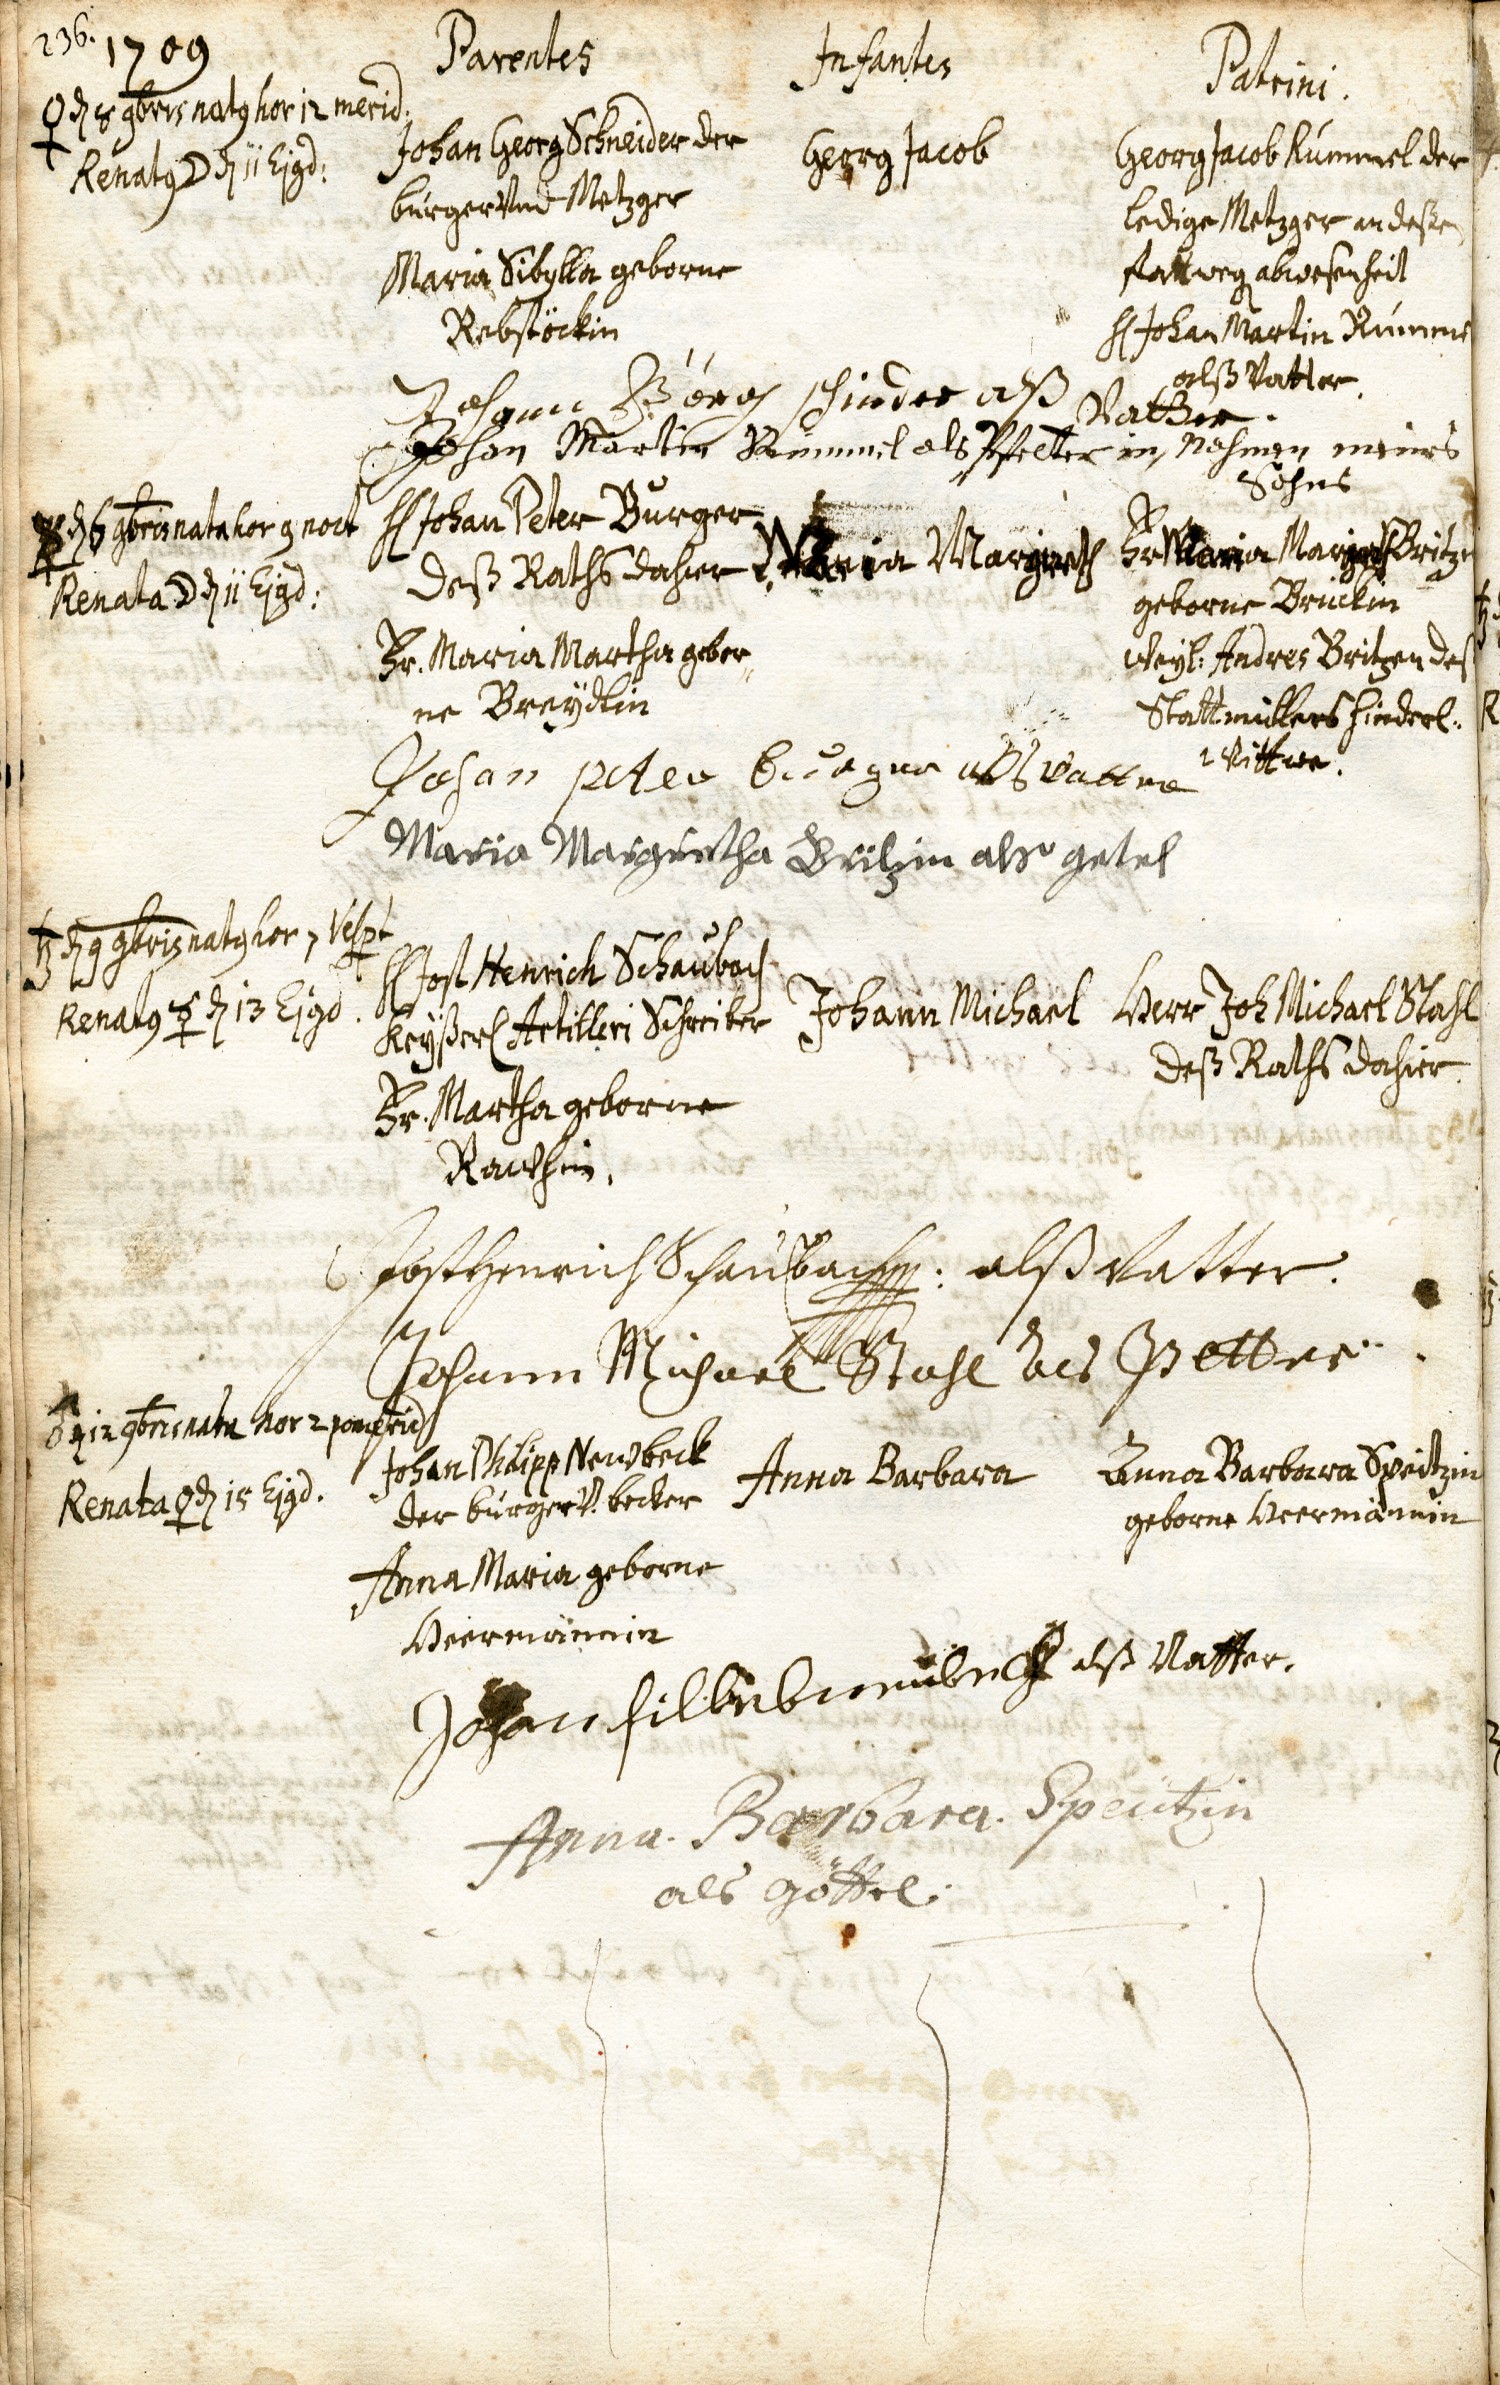 236.
1709
Parentes
Infantes
Patrini.
♀ d 8 9bris natq hor 12 merid:
Renatq ☽ d 11 Ejqd:
Johan Georg Schneider der
burger Vnd Metzger
Maria Sibylla geborne
Rebstöckin
Georg Jacob
Georg Jacob Rummel der
ledige Metzger an deßen
statt weg abwesenheit
H Johan Martin Rumme
alß Vatter.
Johann Görg schinder alß
Vatter.
Johan Martin Rimmel als Pfetter in Nahmen meines
Sohns
d 6 9bris nata hor 9 noct
Renata ☽ d 11 Ejqd:
H Johan Peter Burger
deß Raths dahier
Fr. Maria Martha gebor„
ne Breÿdtin
Maria Margreth
Fr Maria Margreth Britze
geborne Brückin
Weyl: Andres Britzen deß
Stattmüllers hinderl:
Wittwe.
Johan peter burger als vatter
Maria Margretha Britzin alß getel
♄ d 9 9bris natq hor 7 Vesp
Renatq ☿ d 13 Ejqd.
H Jost Henrich Schaubach
Keÿßerl Artilleri Schreiber
Fr. Martha geborne
Rauchin.
Johann Michael
Herr Joh Michael Stahl
deß Raths dahier
Jost Henrich Schaubach: alß Vatter.
Johann Michael Stahl als Petter.
♂ d 12 9bris nata hor 2 pomerid
Renata ♀ d 15 Ejqd.
Johan Philipp Newbeck
der burger V. becker
Anna Maria geborne
Heermännin
Anna Barbara
Anna Barbara Speitzin
geborne Heermännin
Johan alß Vatter.
Anna. Barbara. Speitzin
als göttel.